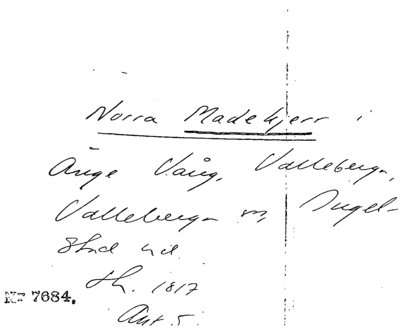 Norra Madekjerr i
Änge Vång, Valleberga,
Valleberga sn, Ingel-
stad hd
Sk. 1817
Akt 5
M 7684.